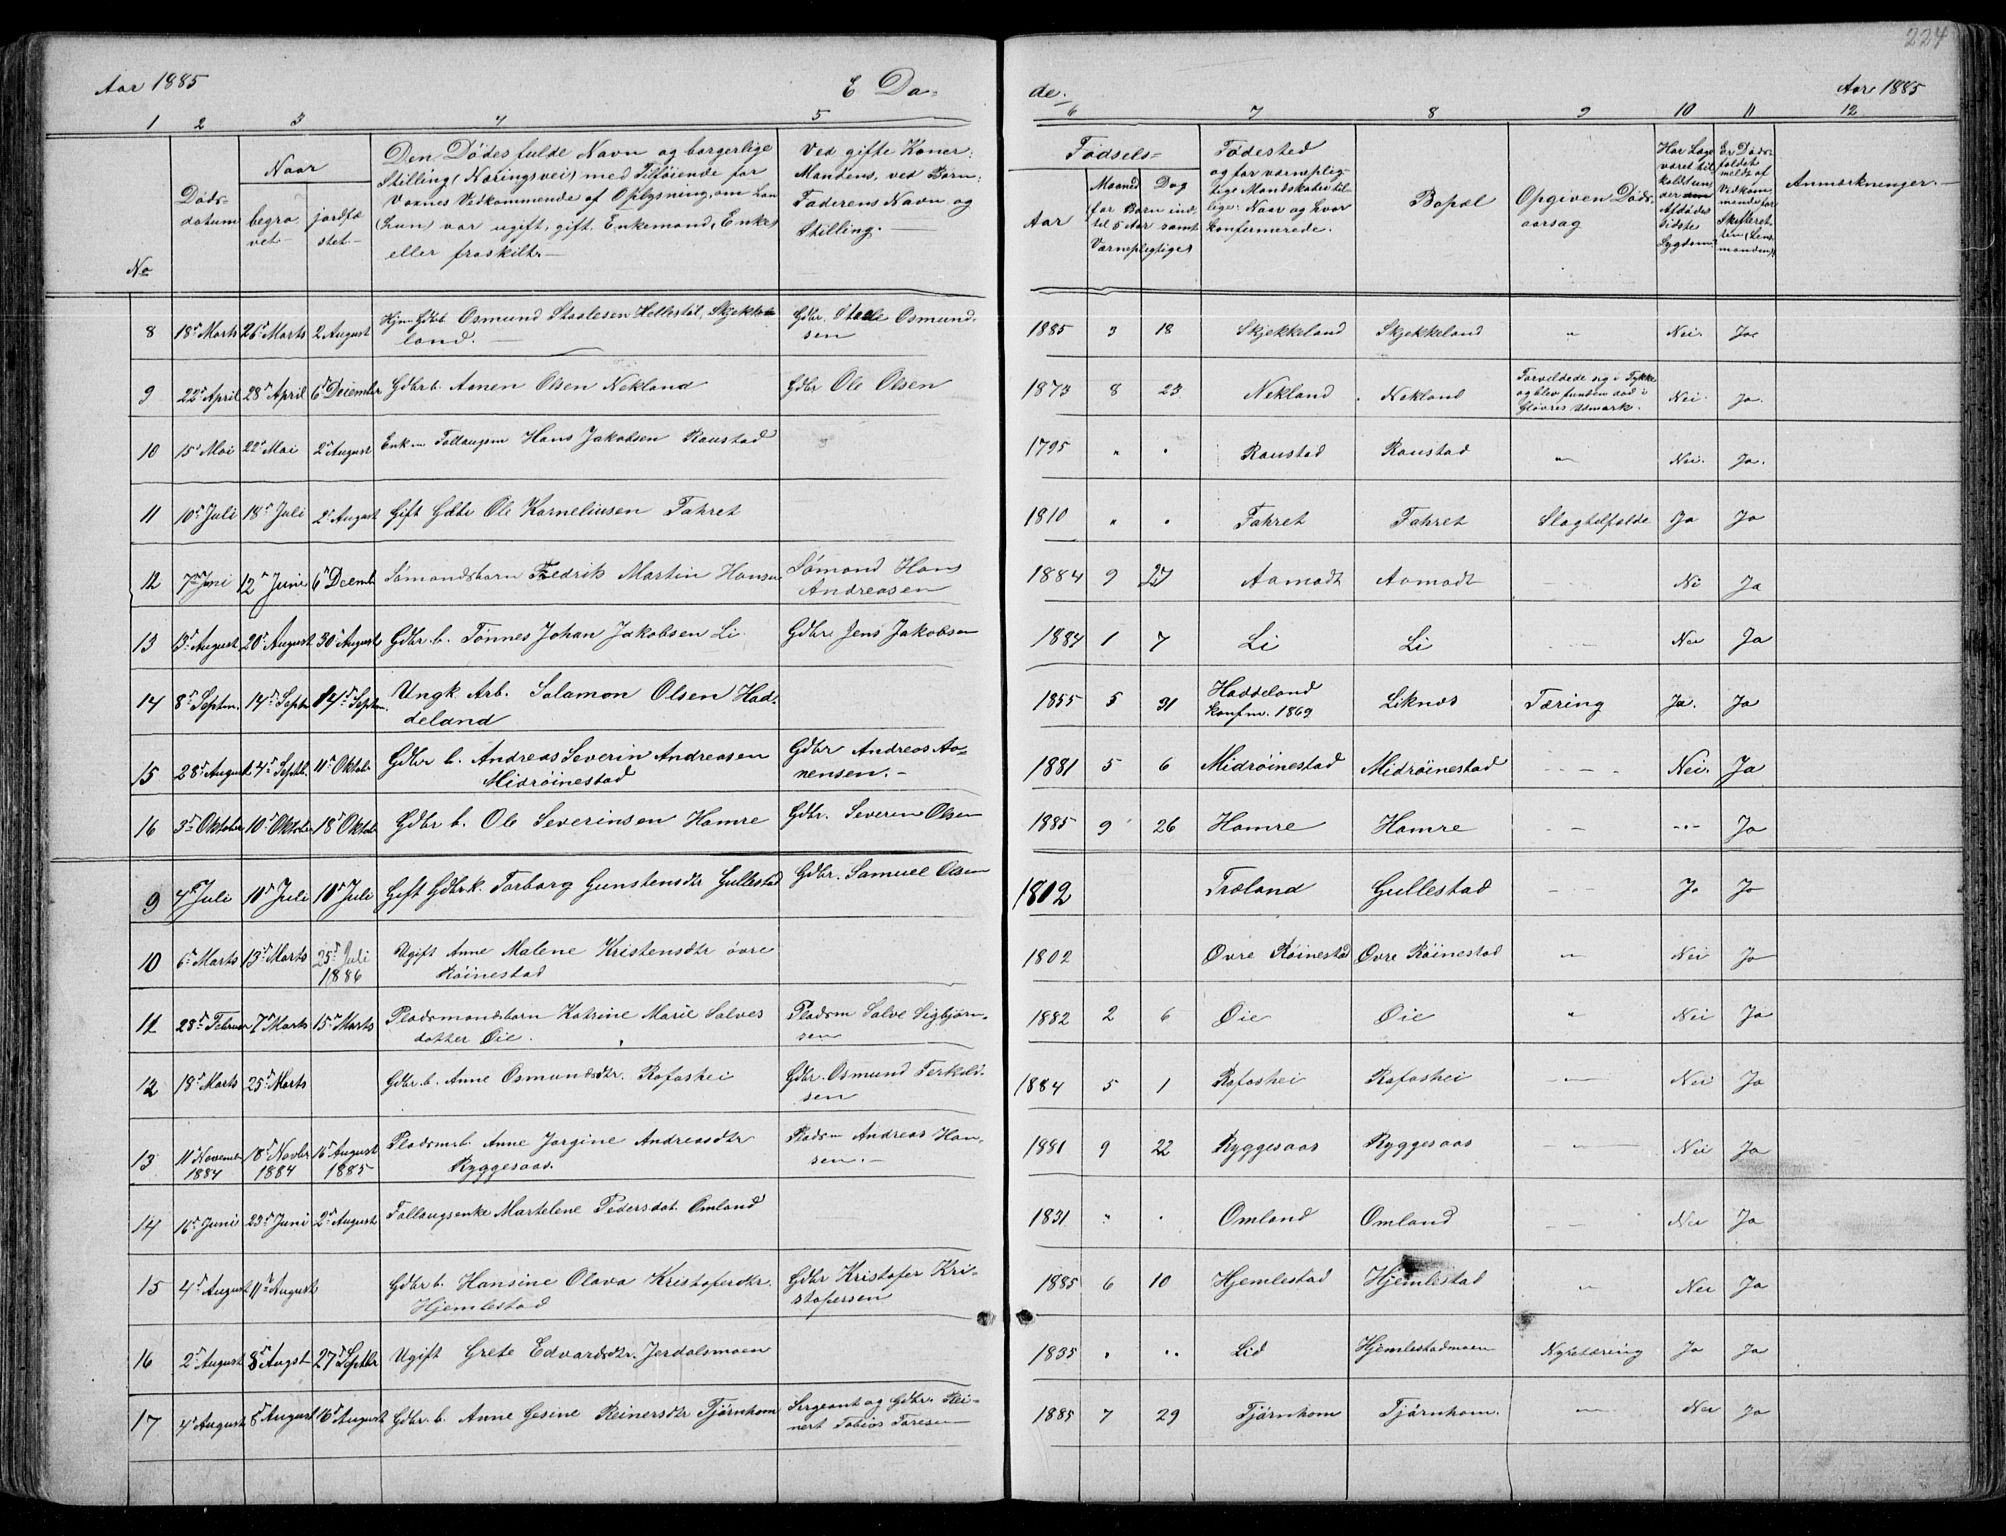 224
Aar 1885
E Dø-
de.
Aar 1885
1 2 3 4 5 6 7 8 9 10 11 12
No
Døds-
datum
Naar
begra-
vet
jordfæ-
stet
Den Dødes fulde Navn og borgerlige
Stilling (Næringsvei) med Tilføiende for
Voxnes Vedkommende af Oplysning, om han
(hun) var ugift, gift, Enkemand, Enke
eller fraskilt.
Ved gifte Koner:
Mandens, ved Børn:
Faderens Navn og
Stilling.
Fødsels-
Aar
Maaned
Dag
(for Børn ind-
til 5 Aar samt
Værnepligtige)
Fødested
og for værneplig-
tige Mandskaber til-
lige: Naar og hvor
konfirmerede.
Bopæl
Opgiven Døds-
aarsag
Har Læge
været til-
kaldt un-
der den
Afdødes
sidste
Sygdom?
Er Døds-
faldet
meldt af
Vedkom-
mende for
Skifteret-
ten (Lens-
manden)?
Anmærkninger.
8 18de Marts 26de Marts 2 August Osmund Staalesen Hellestøl, Skjekke- Gdbr. Staale Osmund- 1885 3 18 Skjekkeland Skjekkeland " Nei. Ja
land. sen
9 22de April 28de April 6te December Gdbr b. Aanen Olsen Nekland Gdbr Ole Olsen 1873 8 23 Nekland Nekland Forvildede sig i Tykke Nei. Ja.
og blev funden død i
Gløvres Udmark.
10 15de Mai 22de Mai 2den August Enkem Følaugsm Hans Jakobsen Raustad 1795 " " Raustad Raustad " Nei. Ja.
11 10de Juli 18de Juli 2den August Gift Ole Korneliusen Fahret 1810 " " Fahret Fahret Slagtilfælde Ja Ja
12 7de Juni 12te Juni 6te Decemb Sømandsbarn Fredrik Martin Hansen Sømand Hans 1884 9 27 Aamodt Aamodt Ja
Andreasen
13 13de August 20de August 30te August Gdbr. b. Tønnes Johan Jakobsen Li Gdbr. Jens Jakobsen 1884 1 7 Li Li Nei Ja
14 8de Septm. 14de Septm 14de Septm Ungk. Arb. Salamon Olsen Had- 1855 5 31 Haddeland Liknes Tæring Ja. Ja
deland konfm. 1869
15 28de August 4de Septb. 11te Oktob Gdbr b. Andreas Severin Andreasen Gdbr Andreas Aa- 1881 5 6 Midrøinestad Midrøinestad Nei. Ja
Midrøinestad nensen.
16 3die Oktober 10de Oktober 18de Oktob Gdbr b. Ole Severinsen Hamre Gdbr. Severin Olsen 1885 9 26 Hamre Hamre Ja
9 4de Juli 10de Juli 10de Juli Gift Gdbrk. Torborg Gunstensdtr Gullestad Gdbr. Samuel Olsen 1802 Træland Gullestad Ja Ja
10 6te Marts 13de Marts 25de Juli Ugift Anne Malene Kristensdtr øvre 1802 Øvre Røinestad Øvre Røinestad " Nei Ja
1886 Røinestad
11 28de Februar 7de Marts 15de Marts Pladsmandsbarn Katrine Marie Salves Pladsm Salve Sigbjørn- 1882 2 6 Øie Øie " Nei Ja
datter Øie. sen
12 18de Marts 25de Marts Gdbr. b. Anne Osmundsdtr. Rafoshei Gdbr. Osmund Terkild- 1884 5 1 Rafoshei Rafoshei Nei Ja
sen
13 11te Novemb 18de Novbr 16de August Pladsmb. Anne Jørgine Andreasdtr Pladsm Andreas Han- 1881 9 22 Ryggesaas Ryggesaas Nei Ja
1884 1884 1885 Ryggesaas. sen.
14 16de Juni 23de Juni 2den August Følaugsenke Martelene Pedersdat. Omland 1831 " " Omland Omland Nei Ja
15 4de August 11te August Gdbr b. Hansine Olava Kristofersdtr. Gdbr Kristofer Kri- 1885 6 10 Hjemlestad Hjemlestad " Nei Ja
Hjemlestad stofersen
16 2den August 8de Augst 27de Septbr Ugift Grete Edvardsdtr. Jerdalsmoen 1835 " " Lid Hjemlestadmoen Nyretæring Ja Ja
17 4de August 8de August 16de August Gdbr. b. Anne Gesine Reinersdtr Tjørnhom Sergeant og Gdbr. Rei- 1885 7 29 Tjørnhom Tjørnhom. Nei Ja
nert Tobias Toresen